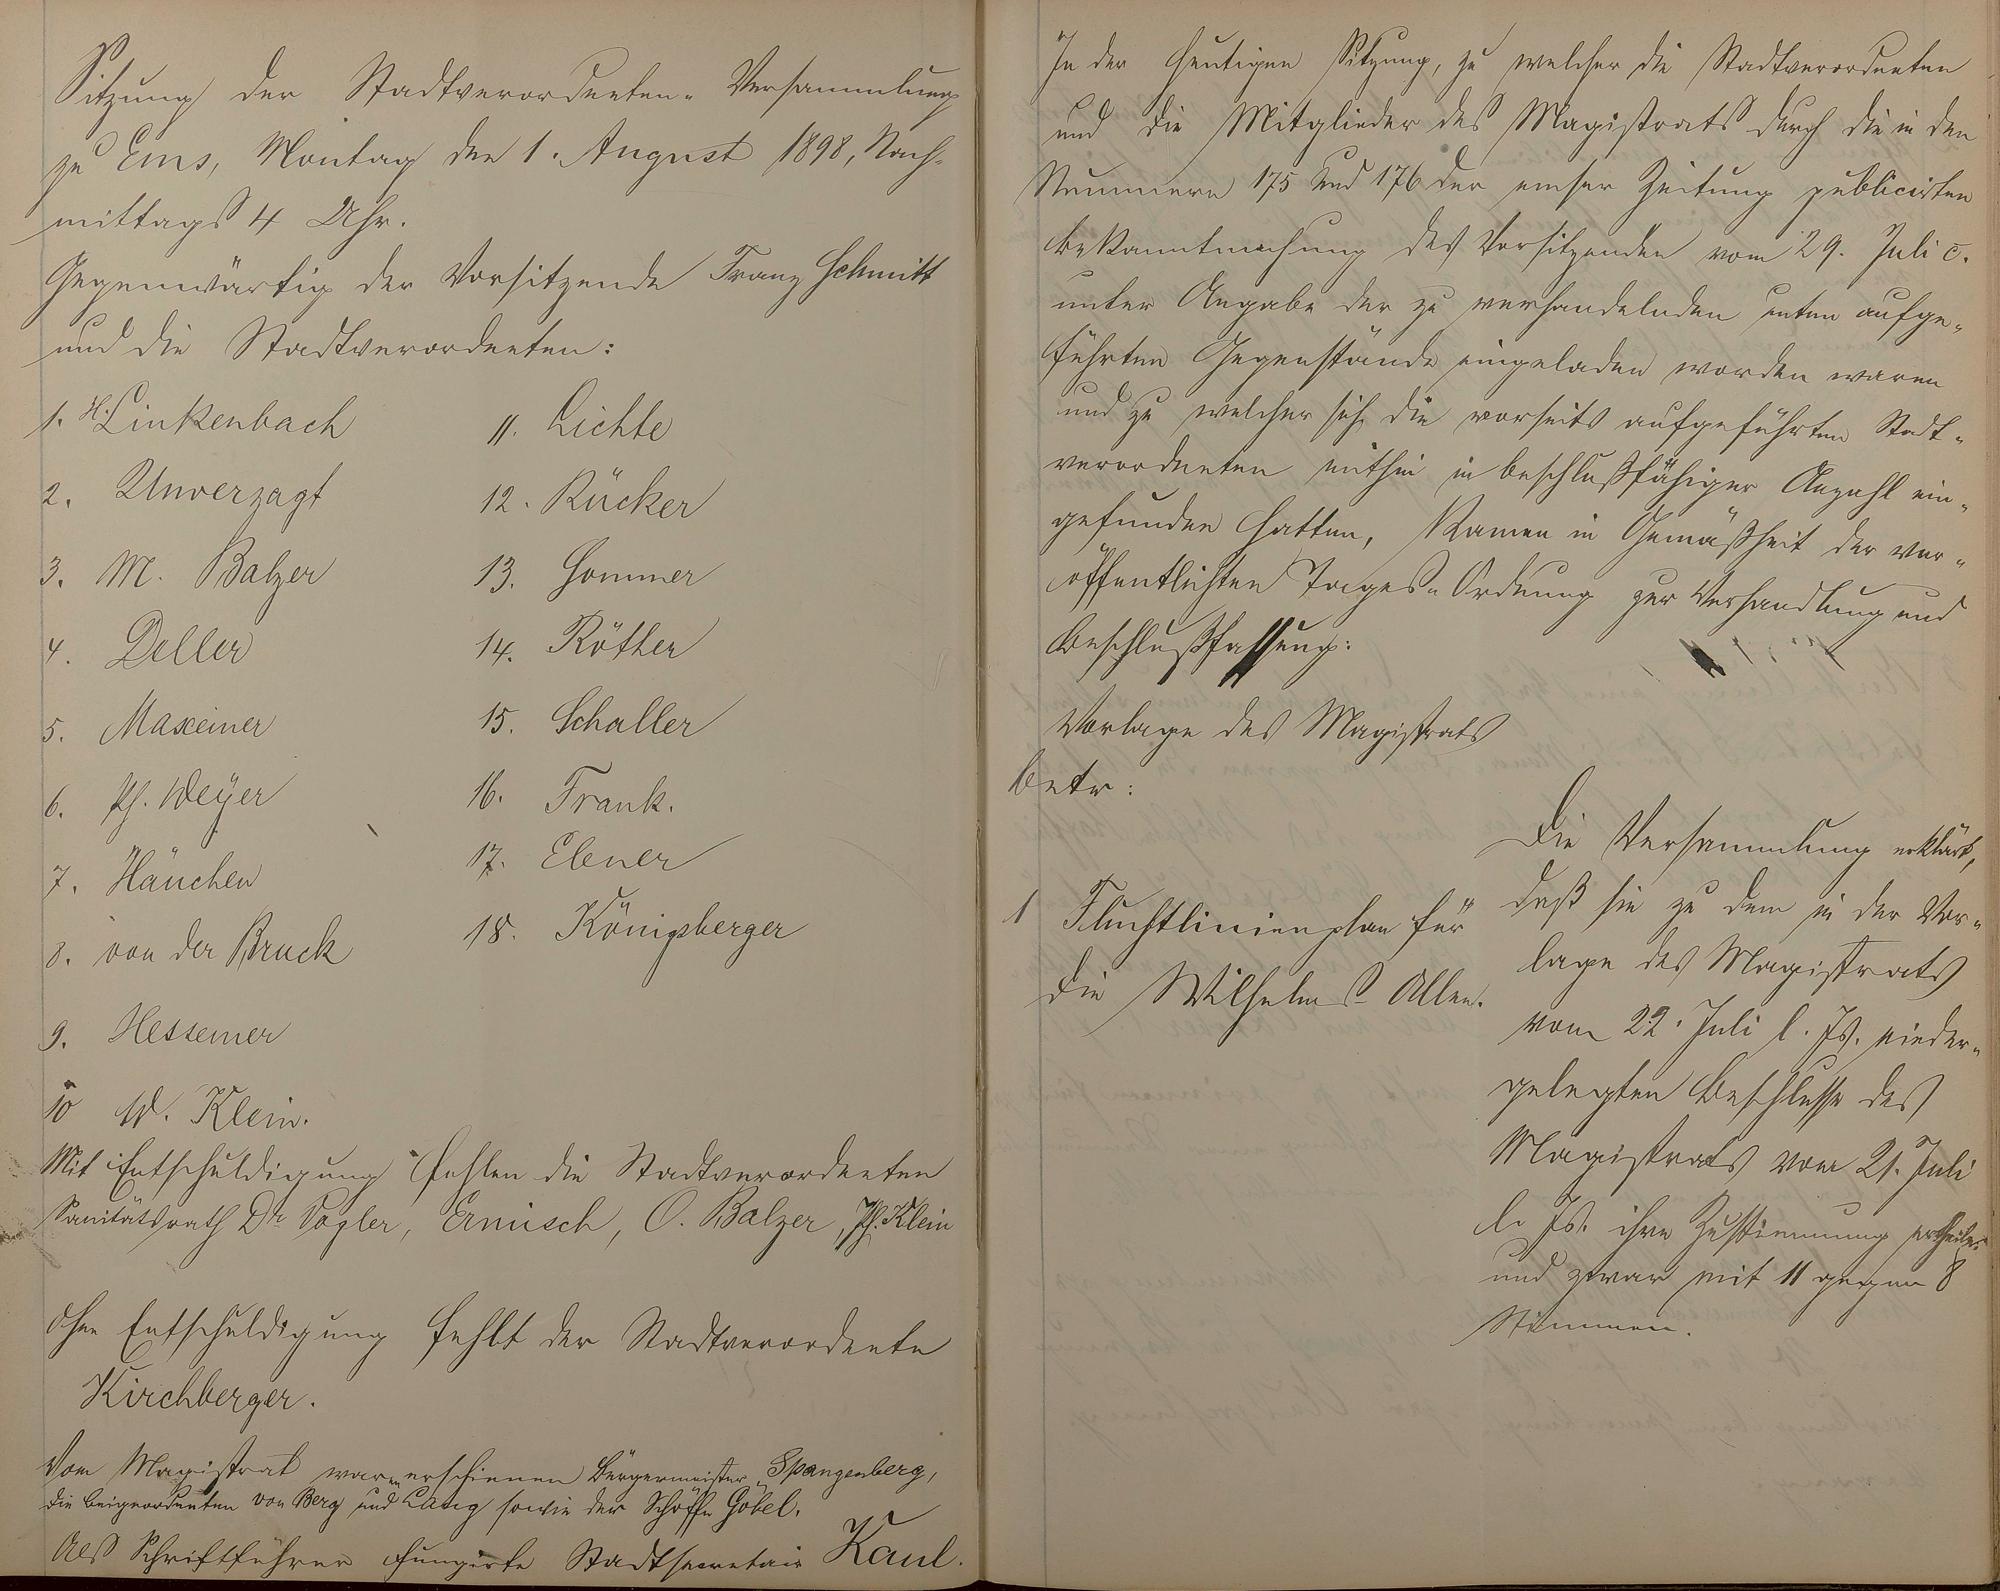 Sitzung der Stadtverordneten-Versammlung
zu Ems, Montag den 1. August 1898, Nach-
mittags 4 Uhr.
Gegenwärtig der Vorsitzende Franz Schmitt
und die Stadtverordneten:
1. H. Linkenbach
2. Unverzagt
3. M. Balzer
4. Deller
5. Maxeiner
6. Ph. Weyer
7. Häuchen
8. von der Bruck
9. Hessemer
10 W. Klein.
11. Lichte
12. Rücker
13. Sommer
14. Röther
15. Schaller
16. Frank.
17. Ebener
18. Königsberger
Mit Entschuldigung fehlen die Stadtverordneten
Sanitätsrath Dr Vogler, Ermisch, O. Balzer, Ph. Klein
Ohne Entschuldigung fehlt der Stadtverordnete
Kirchberger.
Vom Magistrat waren erschienen Bürgermeister Spangenberg,
die Beigeordneten von Berg und Lang sowie der Schöffe Göbel.
Als Schriftführer fungirte Stadtsecretair Kaul.
In der heutigen Sitzung, zu welcher die Stadtverordneten
und die Mitglieder des Magistrats durch die in den
Nummern 175 und 176 der emser Zeitung publicirten
Bekanntmachung des Vorsitzenden vom 29. Juli c.
unter Angabe der zu verhandelnden unten aufge-
führten Gegenstände eingeladen worden waren
und zu welcher sich die vorseits aufgeführten Stadt-
verordneten mithin in beschlußfähiger Anzahl ein-
gefunden hatten, kamen in Gemäßheit der ver-
öffentlichten Tages-Ordnung zur Verhandlung und
Beschlußfassung:
Vorlage des Magistrats
betr:
1 Fluchtlinienplan für
die Wilhelms-Allee.
Die Versammlung erklärt,
daß sie zu dem in der Vor-
lage des Magistrats
vom 22. Juli l. Js. nieder-
gelegten Beschlusse des
Magistrats vom 21. Juli
l. Js. ihre Zustimmung ertheile
und zwar mit 11 gegen 8
Stimmen.